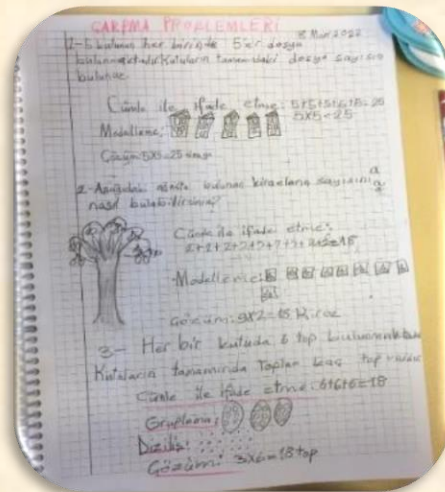 ÇARPMA PROBLEMLERİ
8 Mart 2022
1-5 bulunan her birinde 5'er dosya
bulunmaktadır. Kutuların tamamındaki dosya sayısını
bulunuz.
Cümle ile ifade etme: 5+5+5+5+5=25
5x5=25
Modelleme:
Çözüm: 5x5=25 dosya
2-Aşağıdaki ağaçta bulunan kirazların sayısını
nasıl bulabilirsiniz?
Cümle ile ifade etme:
2+2+2+2+2+2+2+2+2=18
Modelleme:
Çözüm: 9x2=18 kiraz
3- Her bir kutuda 6 top bulunmaktadır
Kutuların tamamında Toplam kaç top vardır
Cümle ile ifade etme: 6+6+6=18
Gruplama:
Diziliş:
Çözüm: 3x6=18 top